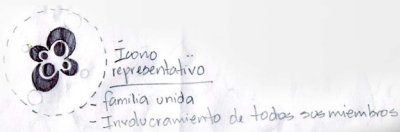 Ícono
representativo
- familia unida
- Involucramiento de todos sus miembros